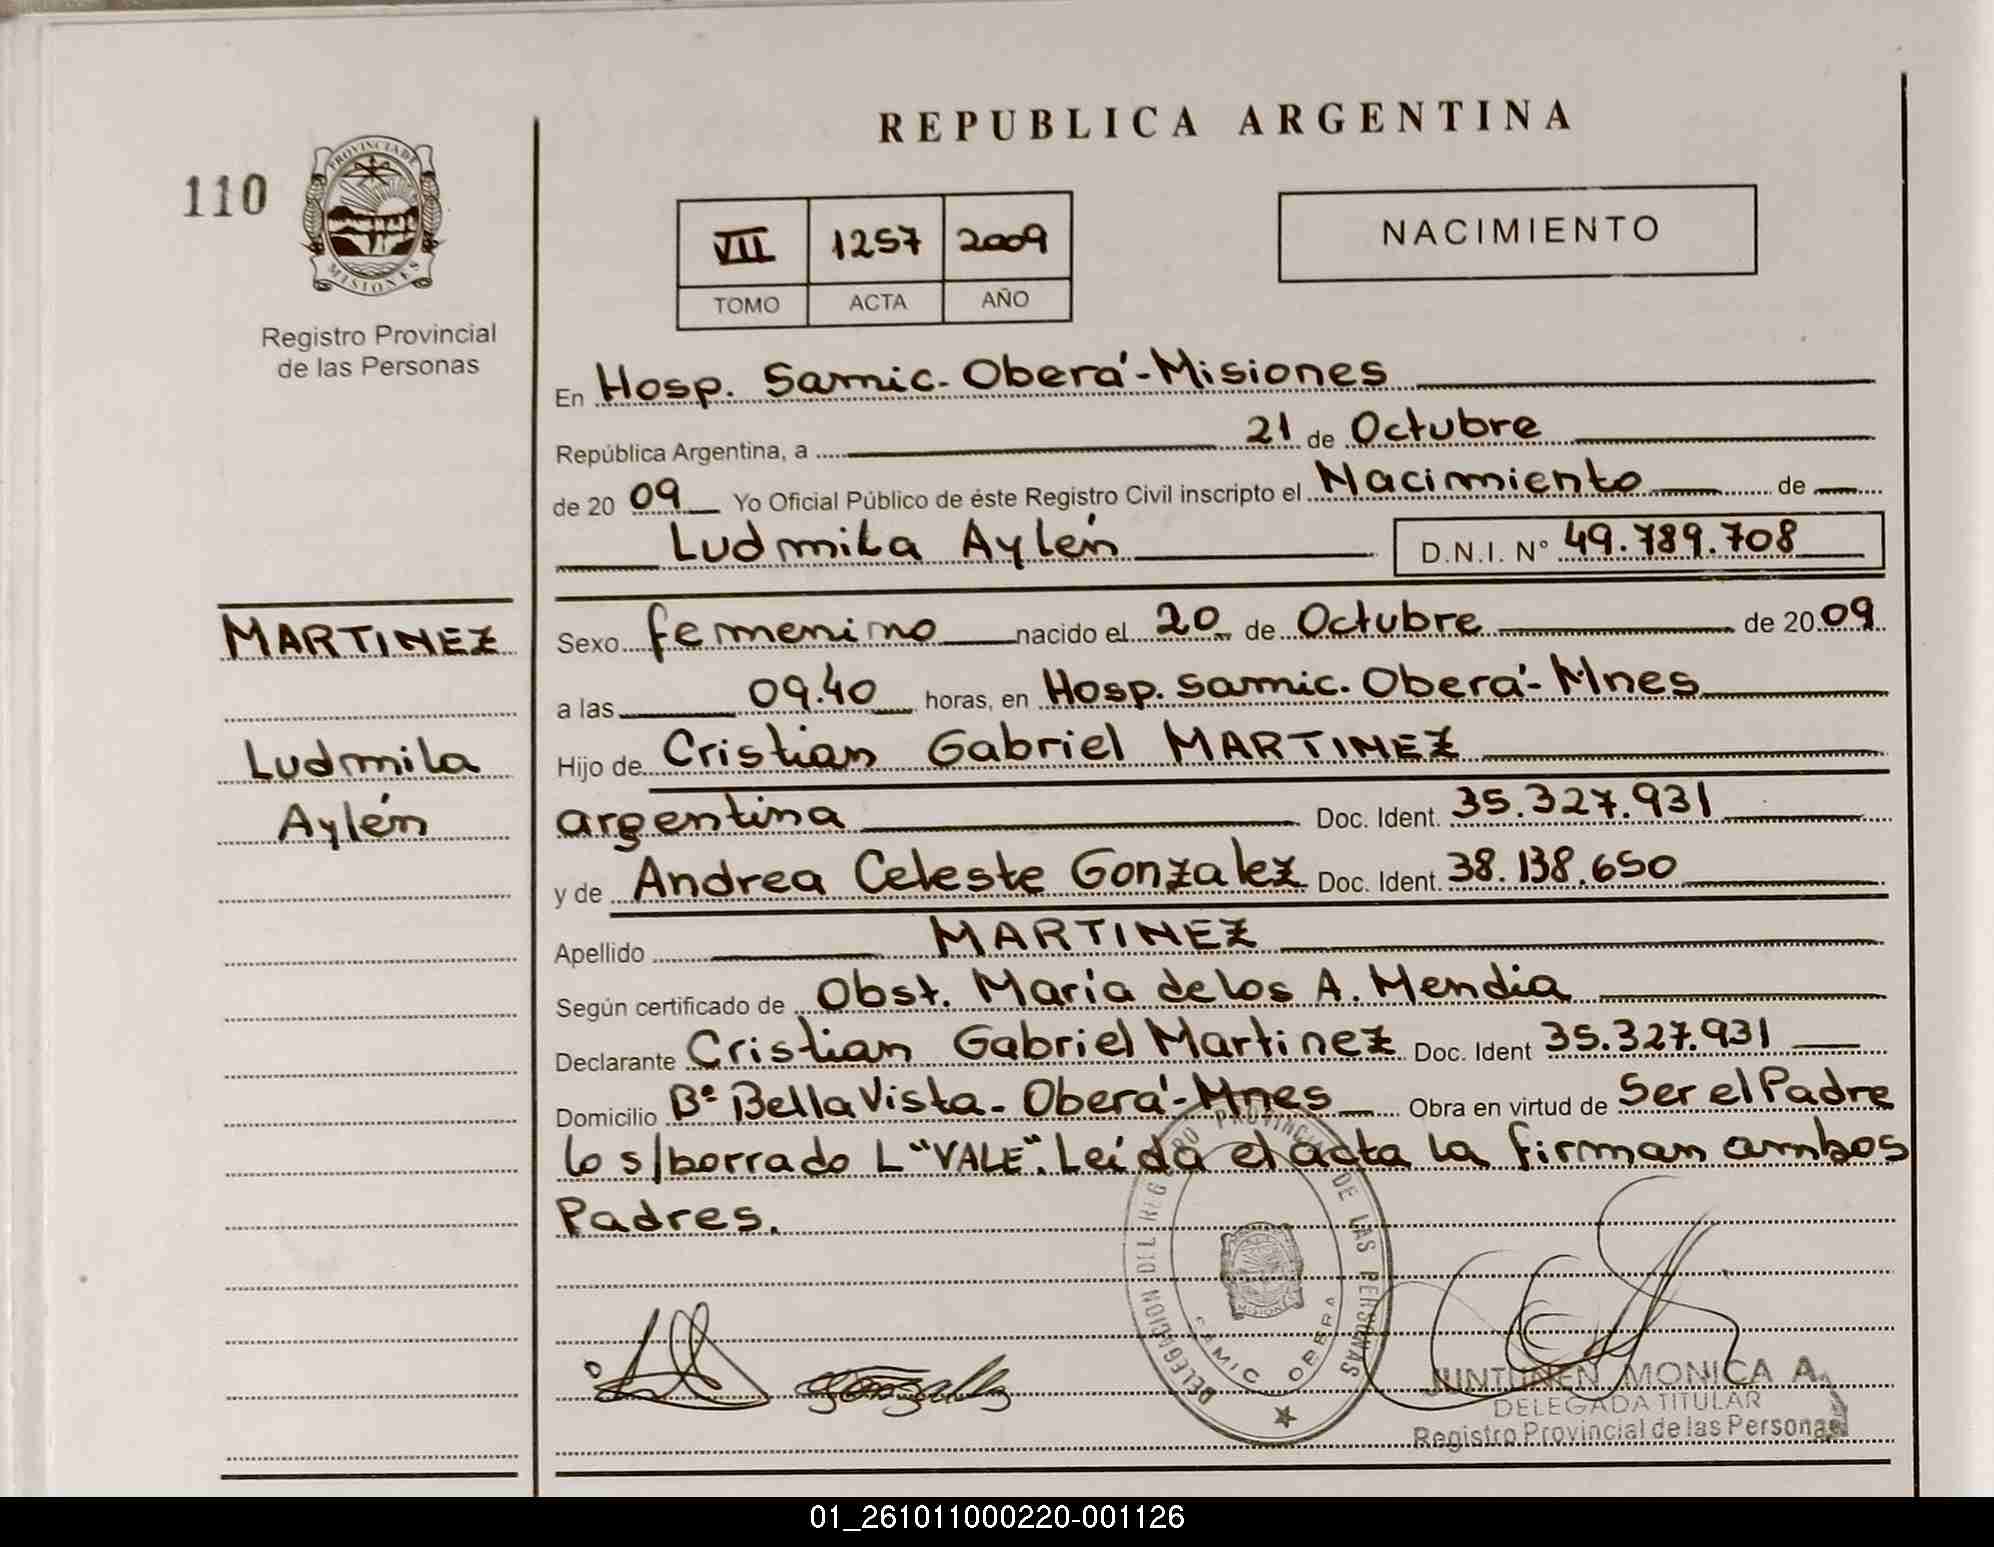 REPUBLICA ARGENTINA
110
PROVINCIA DE
MISIONES
Registro Provincial
de las Personas
VII 1257 2009
TOMO ACTA AÑO
NACIMIENTO
En Hosp. Samic. Oberá-Misiones
República Argentina, a 21 de Octubre
de 20 09 Yo Oficial Público de éste Registro Civil inscripto el Nacimiento de
Ludmila Aylén D.N.I. N° 49.789.708
MARTINEZ
Ludmila
Aylén
Sexo femenino nacido el 20 de Octubre de 20 09
a las 09.40 horas, en Hosp. Samic. Oberá-Mnes
Hijo de Cristian Gabriel MARTINEZ
argentina Doc. Ident. 35.327.931
y de Andrea Celeste Gonzalez Doc. Ident. 38.138.650
Apellido MARTINEZ
Según certificado de Obst. María de los A. Mendia
Declarante Cristian Gabriel Martinez Doc. Ident 35.327.931
Domicilio Bº Bella Vista - Oberá-Mnes Obra en virtud de Ser el Padre
lo s/borrado L "VALE". Leída el acta la firman ambos
Padres.
DELEGACION DEL REG PROVINCIAL DE LAS PERSONAS
SAMIC OBERA
JUNTUNEN MONICA A.
DELEGADA TITULAR
Registro Provincial de las Personas
01_261011000220-001126